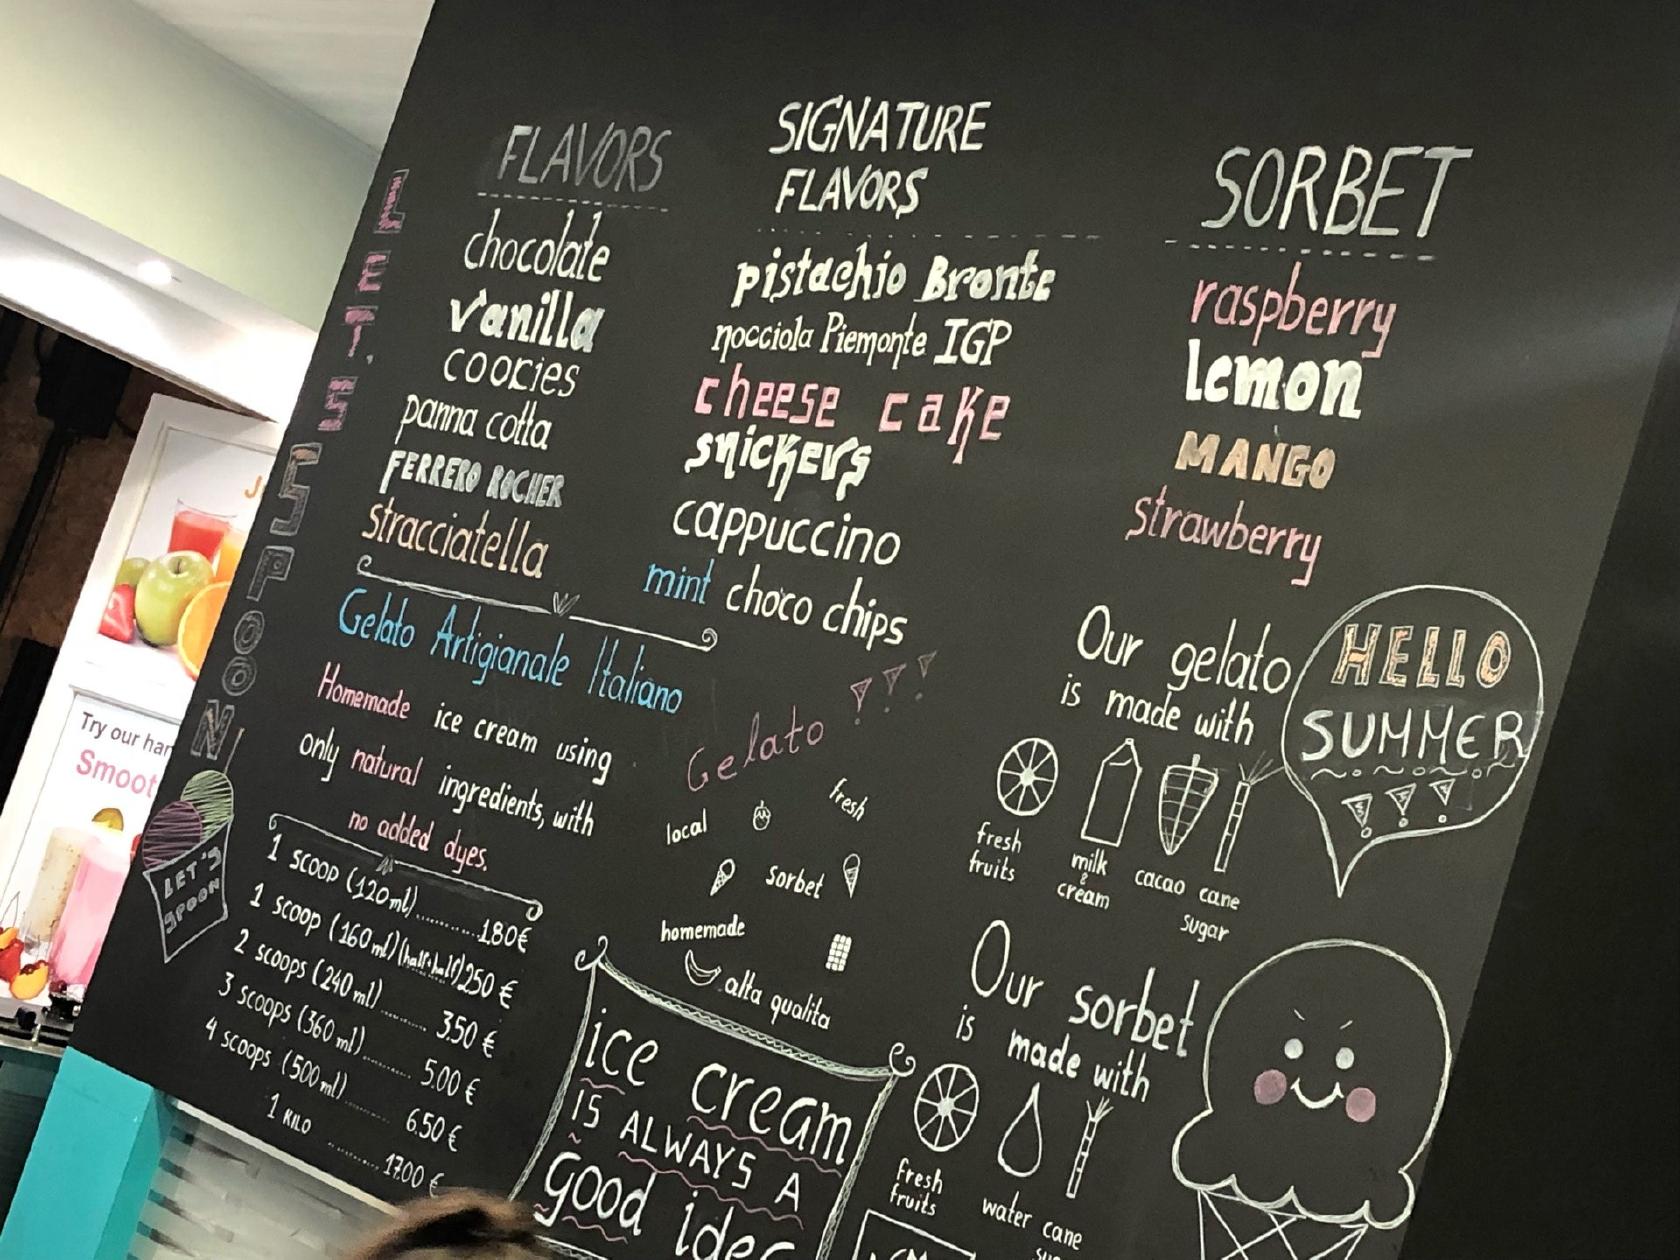 LET'S SPOON!
FLAVORS
chocolate
vanilla
cookies
panna cotta
FERRERO ROCHER
stracciatella
SIGNATURE
FLAVORS
pistachio Bronte
nocciola Piemonte IGP
cheese cake
snickers
cappuccino
mint choco chips
SORBET
raspberry
lemon
MANGO
strawberry
Gelato Artigianale Italiano
Homemade ice cream using
only natural ingredients, with
no added dyes.
1 scoop (120ml)..........1.80€
1 scoop (160ml)(half+half)2.50 €
2 scoops (240ml)........ 3.50 €
3 scoops (360ml)........ 5.00 €
4 scoops (500ml)........ 6.50 €
1 KILO .......... 17.00 €
LET'S
SPOON
Gelato
local
fresh
sorbet
homemade
alta qualita
ice cream
IS ALWAYS A
good idea
Our gelato
is made with
fresh
fruits
milk
&
cream
cacao
cane
sugar
HELLO
SUMMER
Our sorbet
is made with
fresh
fruits
water
cane
Try our
Smoot